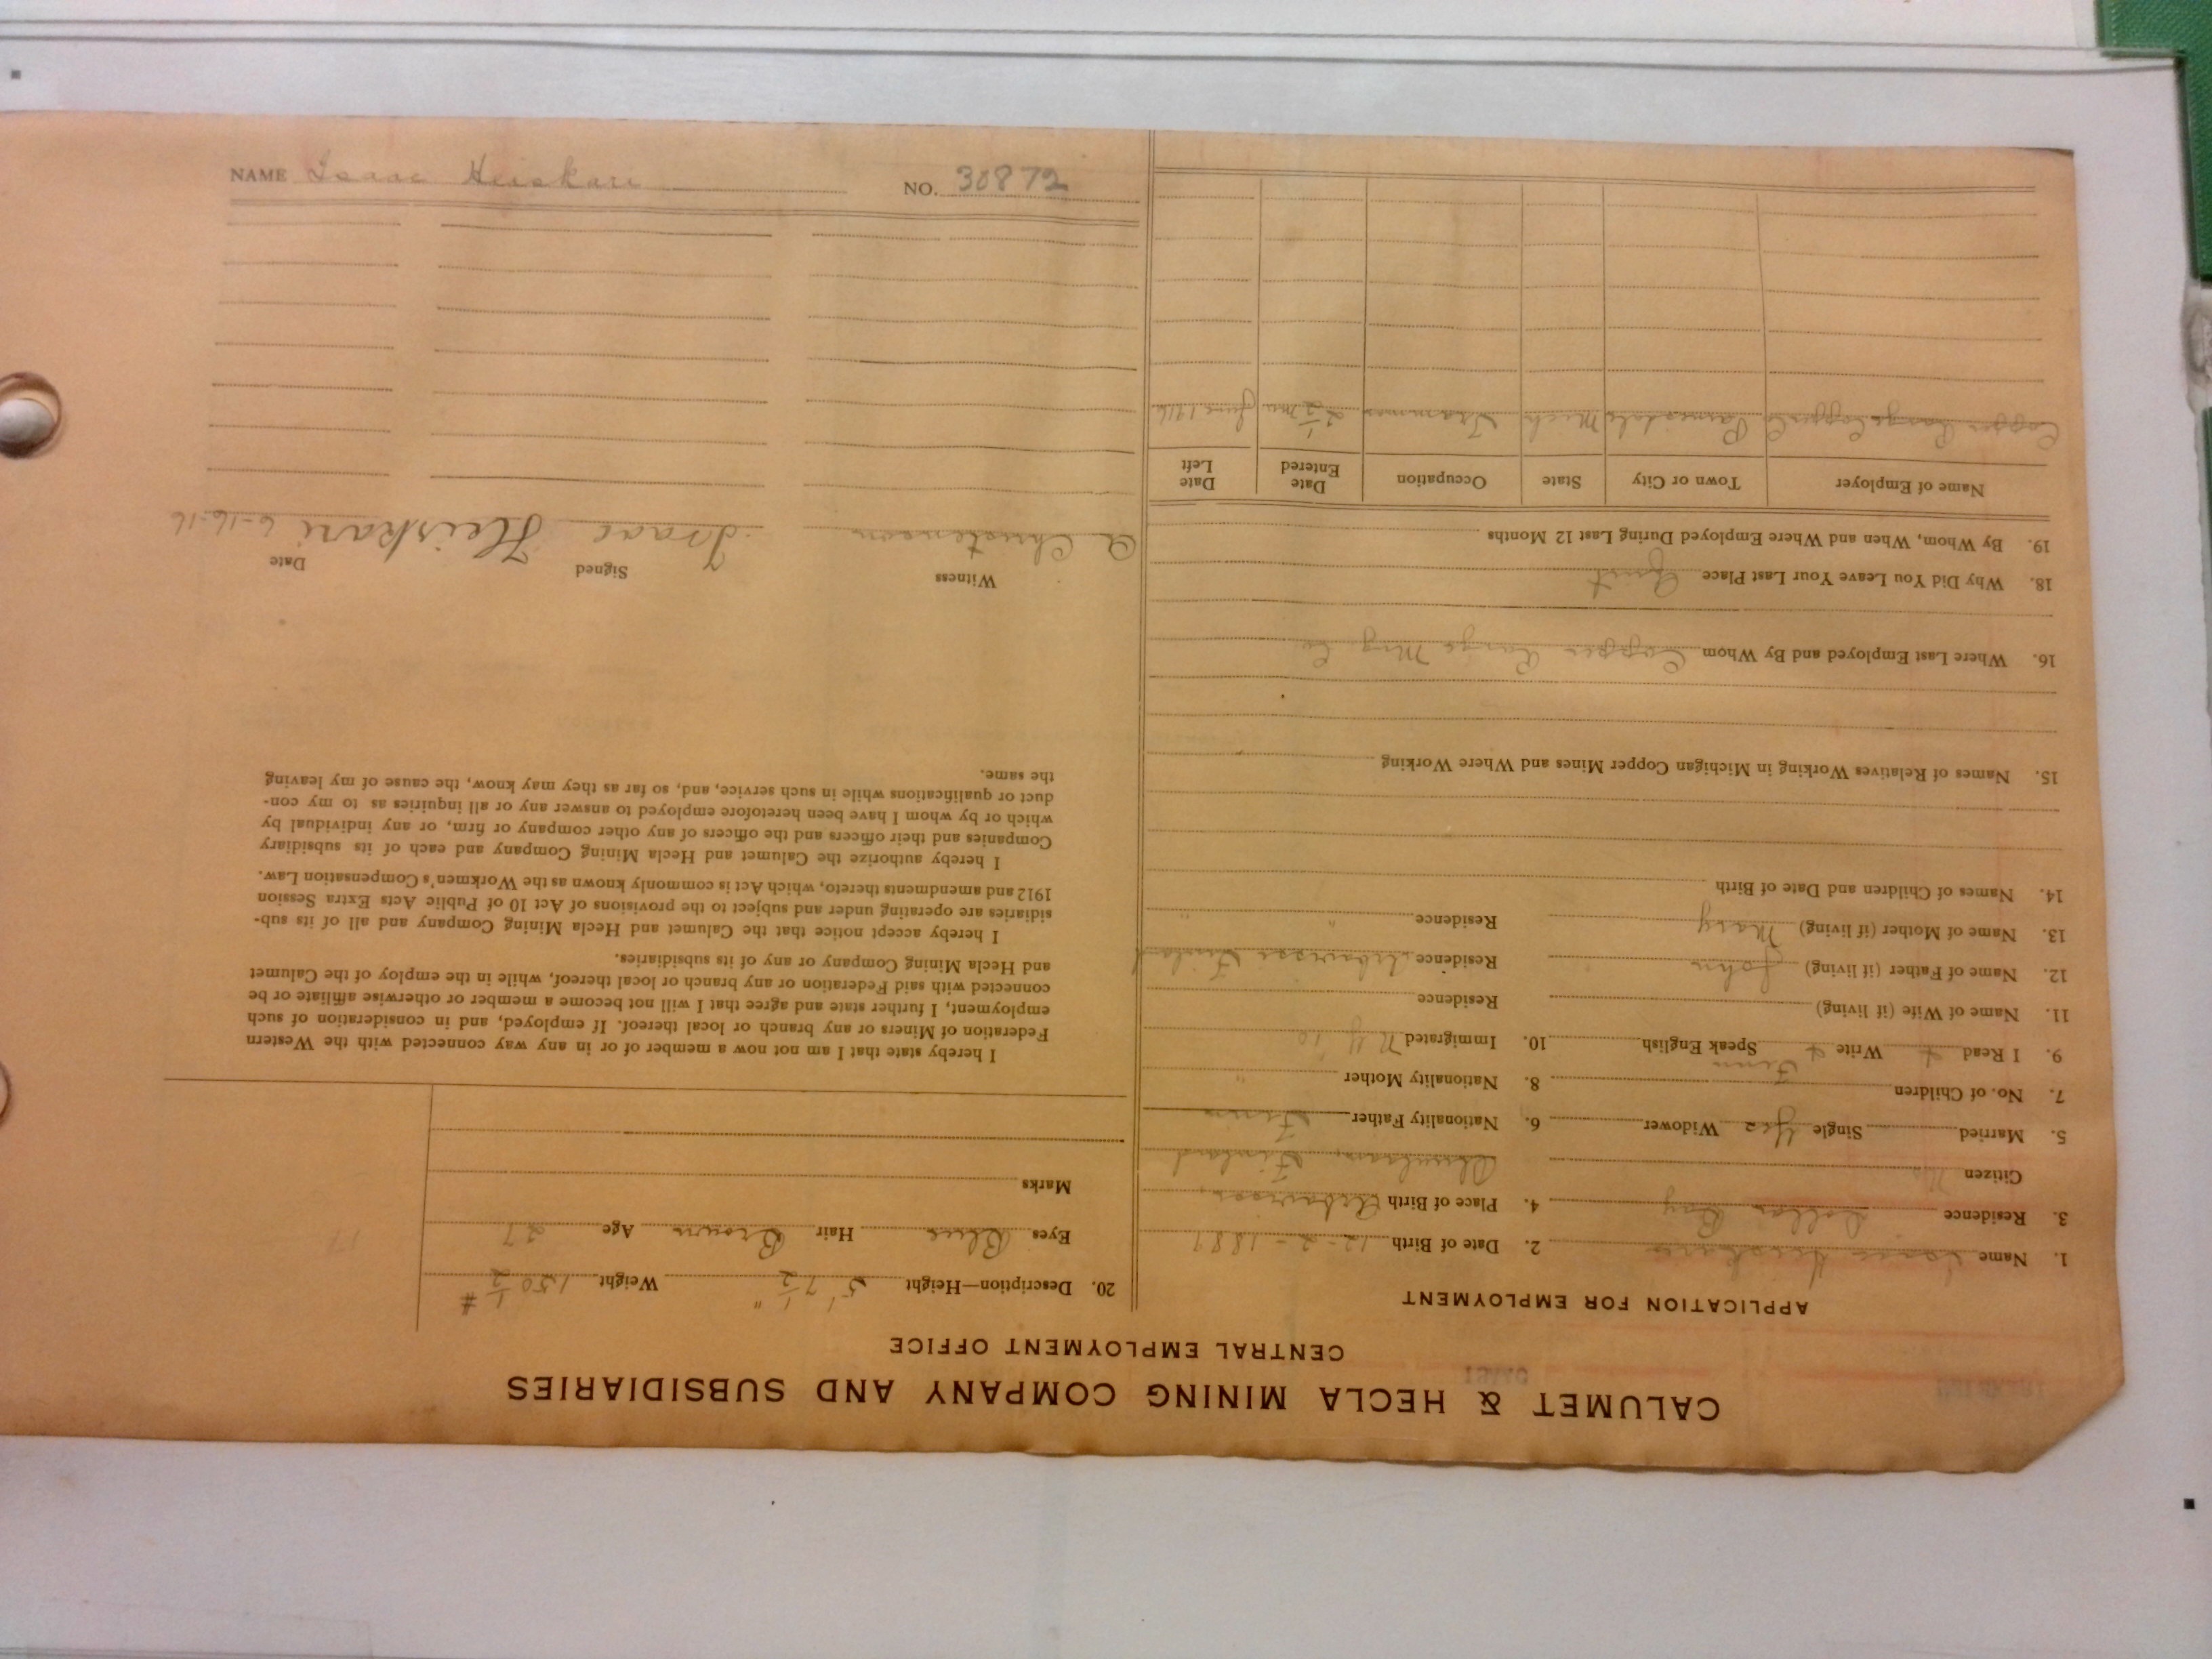 CALUMET & HECLA MINING COMPANY AND SUBSIDIARIES
CENTRAL EMPLOYMENT OFFICE
APPLICATION FOR EMPLOYMENT
1. Name Isaac Heiskari 2. Date of Birth 12-2-1889
3. Residence Dollar Bay 4. Place of Birth
Citizen No Finland
5. Married Single Yes Widower 6. Nationality Father Finn
7. No. of Children 8. Nationality Mother "
Finn
9. I Read + Write + Speak English 10. Immigrated N Y '10
11. Name of Wife (if living) Residence
12. Name of Father (if living) John Residence Finland
13. Name of Mother (if living) Mary Residence "
14. Names of Children and Date of Birth
15. Names of Relatives Working in Michigan Copper Mines and Where Working
16. Where Last Employed and By Whom Copper Range Mng Co
18. Why Did You Leave Your Last Place Quit
19. By Whom, When and Where Employed During Last 12 Months
Name of Employer Town or City State Occupation Date Entered Date Left
Copper Range Copper Co Painesdale Mich Trammer 2 1/2 mo June 1916
20. Description—Height 5' 7 1/2" Weight 150 1/2 #
Eyes Blue Hair Brown Age 27
Marks
I hereby state that I am not now a member of or in any way connected with the Western
Federation of Miners or any branch or local thereof. If employed, and in consideration of such
employment, I further state and agree that I will not become a member or otherwise affiliate or be
connected with said Federation or any branch or local thereof, while in the employ of the Calumet
and Hecla Mining Company or any of its subsidiaries.
I hereby accept notice that the Calumet and Hecla Mining Company and all of its sub-
sidiaries are operating under and subject to the provisions of Act 10 of Public Acts Extra Session
1912 and amendments thereto, which Act is commonly known as the Workmen's Compensation Law.
I hereby authorize the Calumet and Hecla Mining Company and each of its subsidiary
Companies and their officers and the officers of any other company or firm, or any individual by
which or by whom I have been heretofore employed to answer any or all inquiries as to my con-
duct or qualifications while in such service, and, so far as they may know, the cause of my leaving
the same.
Witness Signed Date
A Christenson Isaac Heiskari 6-16-16
NAME Isaac Heiskari NO. 30872